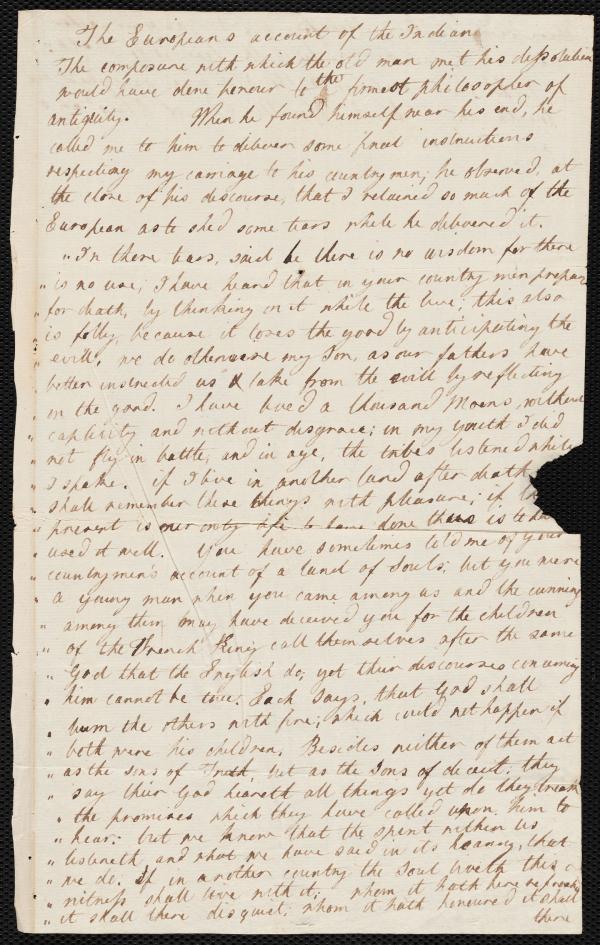 The Europeans account of the Indian
The composure with which the old man met his dissolution
would have done honour to the firmest philosopher of
antiquity. When he found himself near his end, he
called me to him to deliver some final instructions
respecting my carriage to his countrymen; he observed, at
the close of his discourse, that I retained so much of the
European as to shed some tears while he delivered it.
"In those tears, said he there is no wisdom for there
" is no use; I have heard that in your country men prepare
" for death, by thinking on it while the live; this also
" is folly, because it loses the good by anticipating the
" evill; we do otherwise my Son, as our fathers have
" better instructed us & take from the evill by reflecting
" on the good. I have lived a thousand Moons, without
" captivity and without disgrace; in my youth I did
" not fly in battle, and in age, the tribes listened while
" I spake. if I live in another land after death
" shall remember these things with pleasure; if the
" present is our only life to have done thus is to have
" used it well. You have sometimes told me of your
" countrymen's account of a land of souls; but you were
" a young man when you came among us and the cunning
" among them may have deceived you for the children
" of the French King call themselves after the same
" God that the English do, yet their discourses concerning
" him cannot be true. Each says, that God shall
" burn the others with fire; which could not happen if
" both were his children. Besides neither of them act
" as the sons of Truth, but as the Sons of deceit; they
" say their God heareth all things yet do they break
" the promises which they have called upon him to
" hear: but we know that the spirit within us
" listeneth and what we have said in its hearing, that
" we do. If in another country the Soul liveth this
" witness shall live with it; whom it hath here reproached
" it shall there disquiet; whom it hath honoured it shall
there